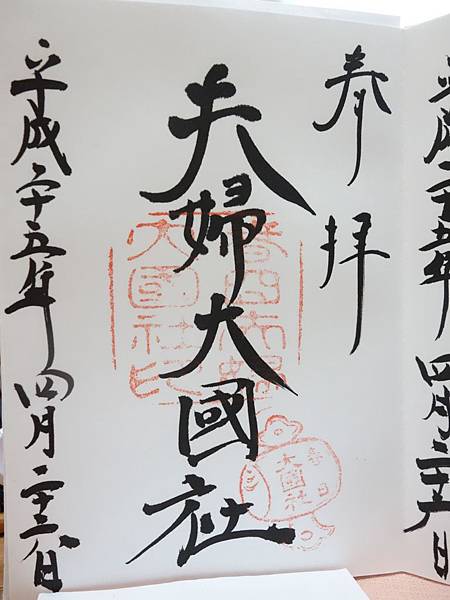 平成二十五年四月二十日
奉拝
夫婦大國社
春日夫婦
大國社印
春日
大國社
平成二十五年四月二十三日